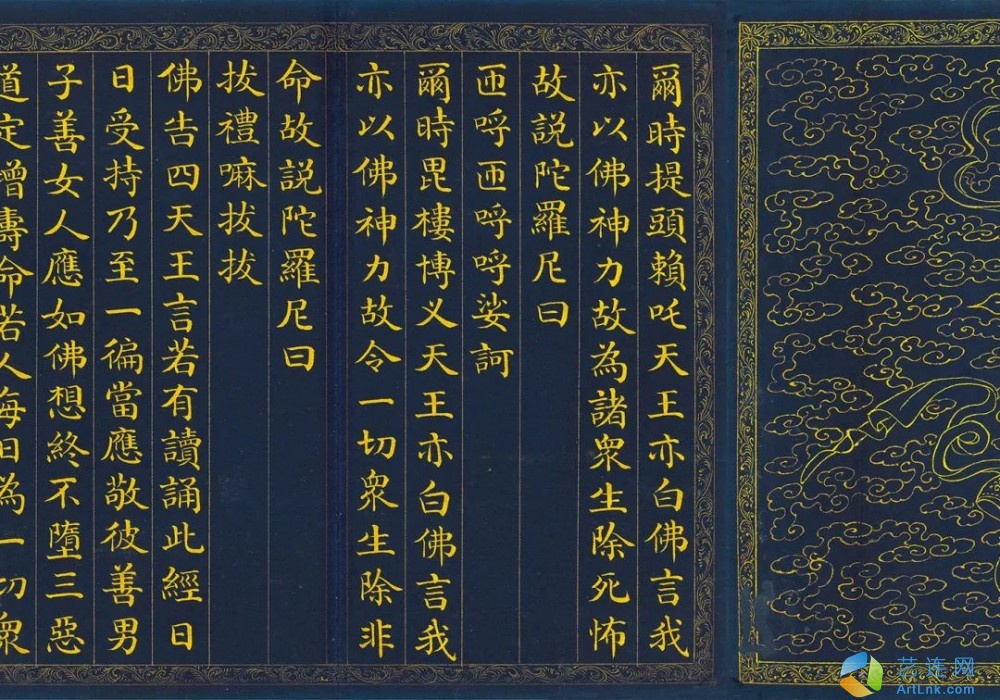 爾時提頭賴吒天王亦白佛言我
亦以佛神力故為諸衆生除死怖
故説陀羅尼曰
呬呼呬呼呼娑訶
爾時毘樓博义天王亦白佛言我
亦以佛神力故令一切衆生除非
命故説陀羅尼曰
拔禮嘛拔拔
佛告四天王言若有讀誦此經日
日受持乃至一徧當應敬彼善男
子善女人應如佛想終不墮三惡
道定增壽命若人每日為一切衆
艺连网
ArtLnk.com